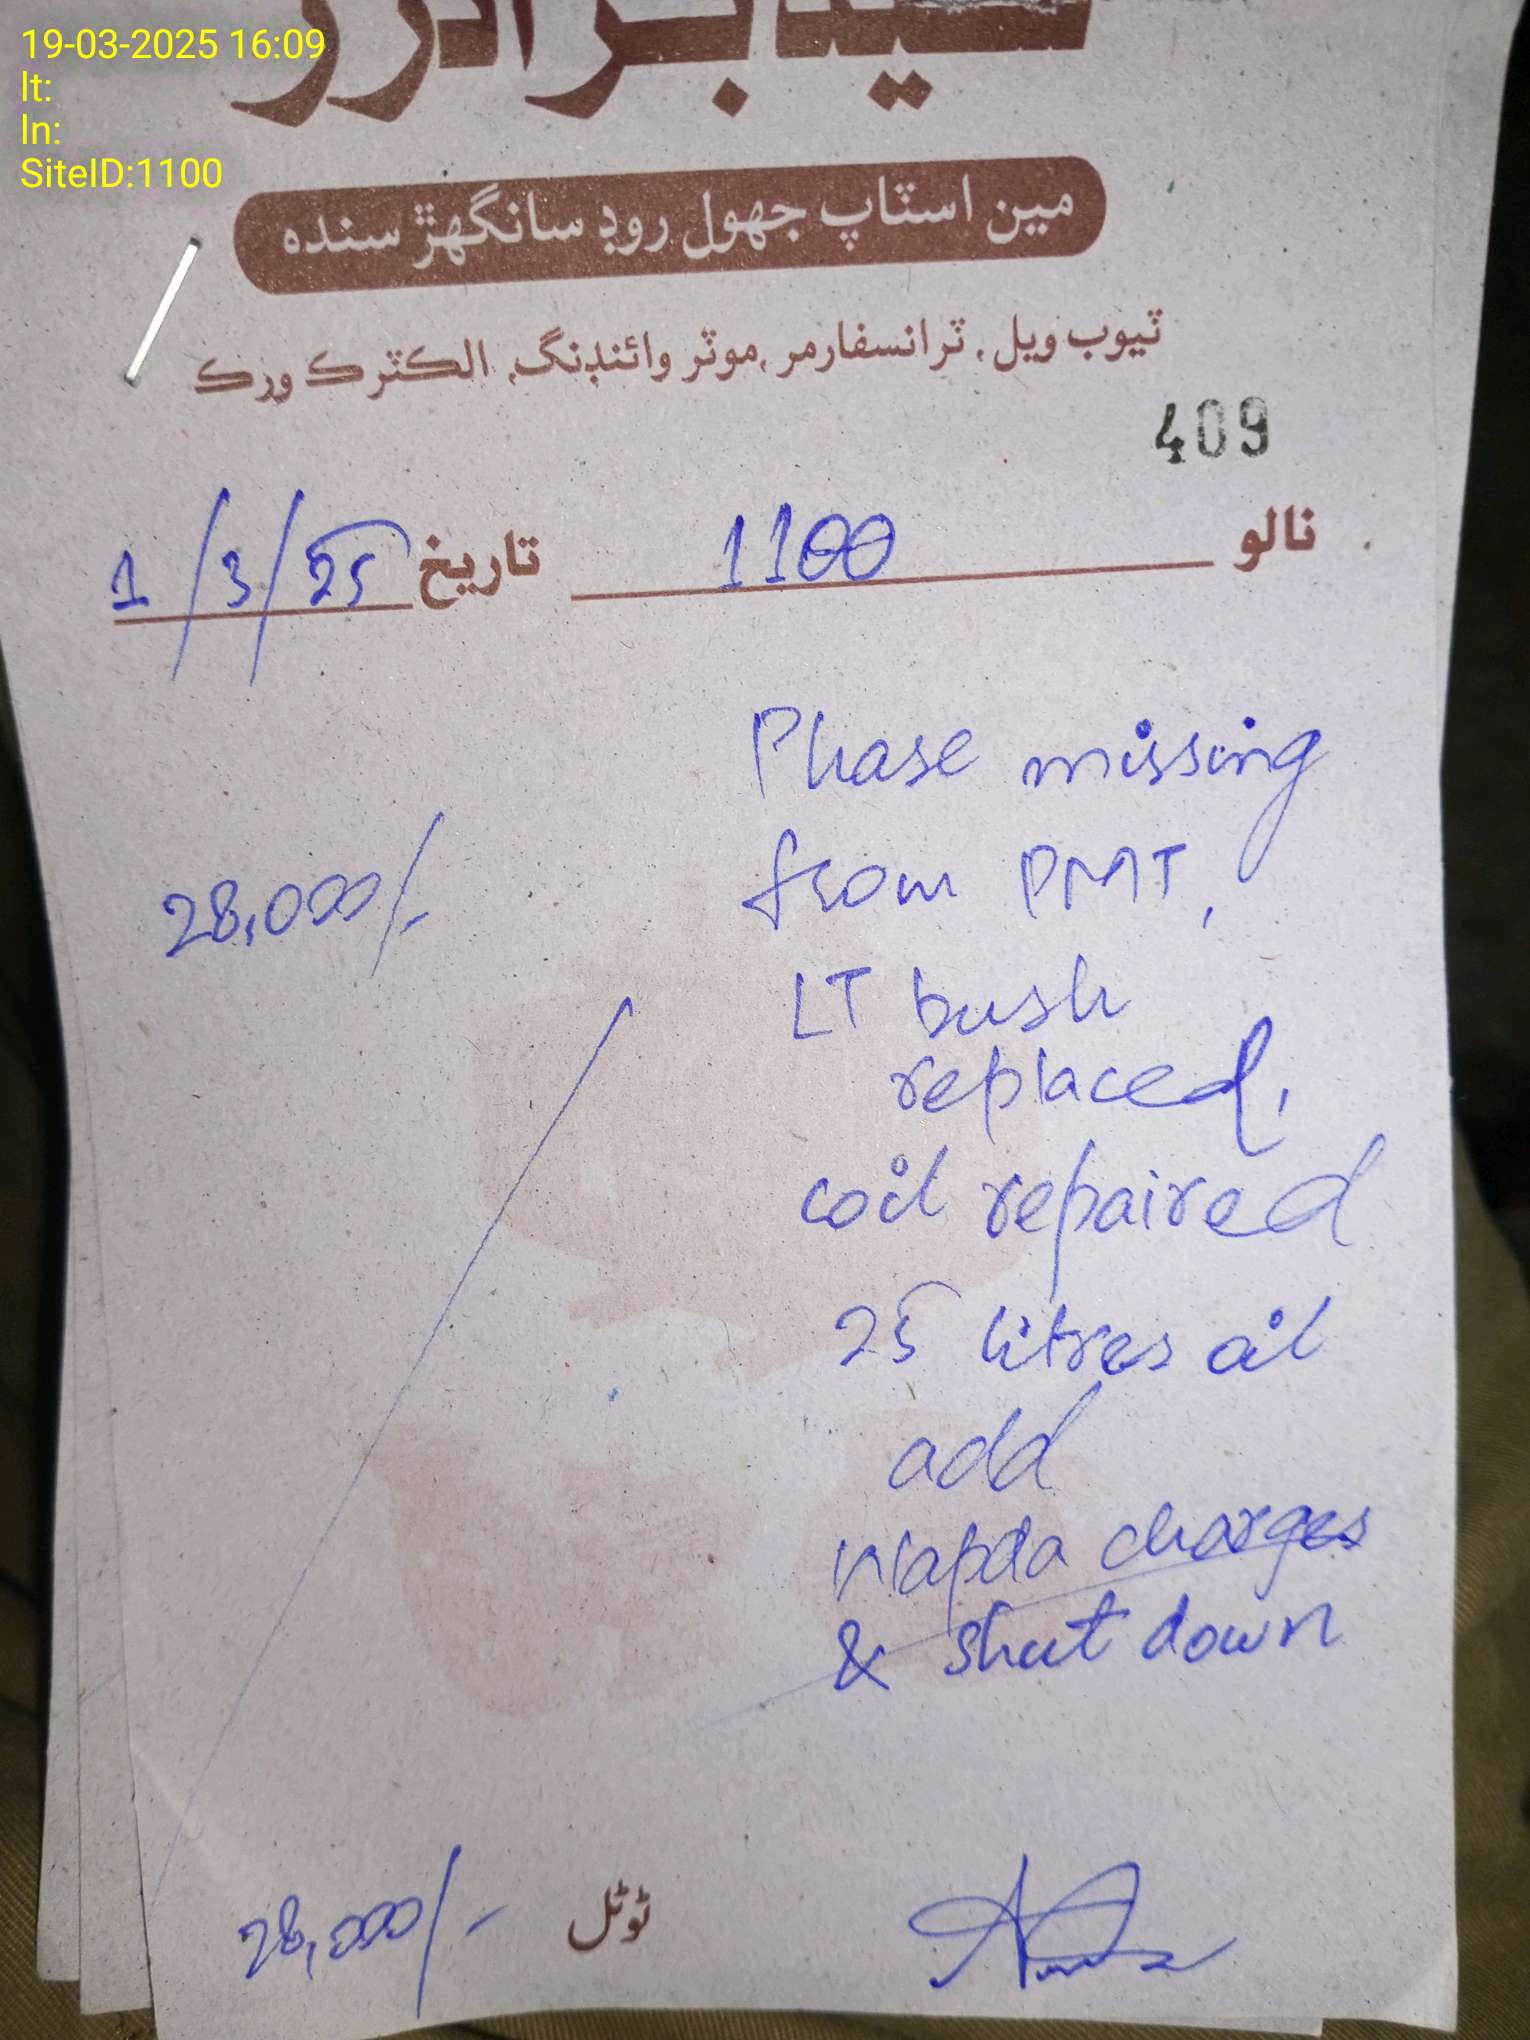 19-03-2025 16:09
lt:
ln:
SiteID:1100
سيد برادرز
مين اسٽاپ جھول روڊ سانگھڙ سنڌ
ٽيوب ويل، ٽرانسفارمر، موٽر وائنڊنگ، الڪٽرڪ ورڪ
409
نالو 1100 تاريخ 1/3/25
Phase missing
28,000/- from PMT,
LT bush
replaced,
coil repaired
25 litres oil
add
Wapda charges
& shut down
ٽوٽل 28,000/-